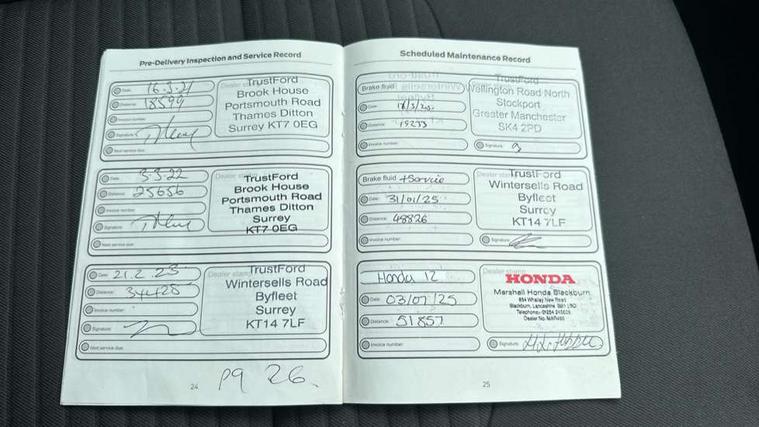 Pre-Delivery Inspection and Service Record
Date: 16.3.21
Distance: 18599
Invoice number:
Signature:
Next service due:
Dealer stamp
TrustFord
Brook House
Portsmouth Road
Thames Ditton
Surrey KT7 0EG
Date: 3.3.22
Distance: 25656
Invoice number:
Signature:
Next service due:
Dealer stamp
TrustFord
Brook House
Portsmouth Road
Thames Ditton
Surrey
KT7 0EG
Date: 21.2.23
Distance: 34428
Invoice number:
Signature:
Next service due:
Dealer stamp
TrustFord
Wintersells Road
Byfleet
Surrey
KT14 7LF
24
pg 26.
Scheduled Maintenance Record
Brake fluid
Date:
Distance:
Invoice number:
TrustFord
Wellington Road North
Stockport
Greater Manchester
SK4 2PD
Signature:
Brake fluid + Service
Date: 31/01/25
Distance: 48826
Invoice number:
Dealer stamp
TrustFord
Wintersells Road
Byfleet
Surrey
KT14 7LF
Signature:
Honda 12
Date: 03/07/25
Distance: 51857
Invoice number:
Dealer stamp
HONDA
Marshall Honda Blackburn
Signature:
25